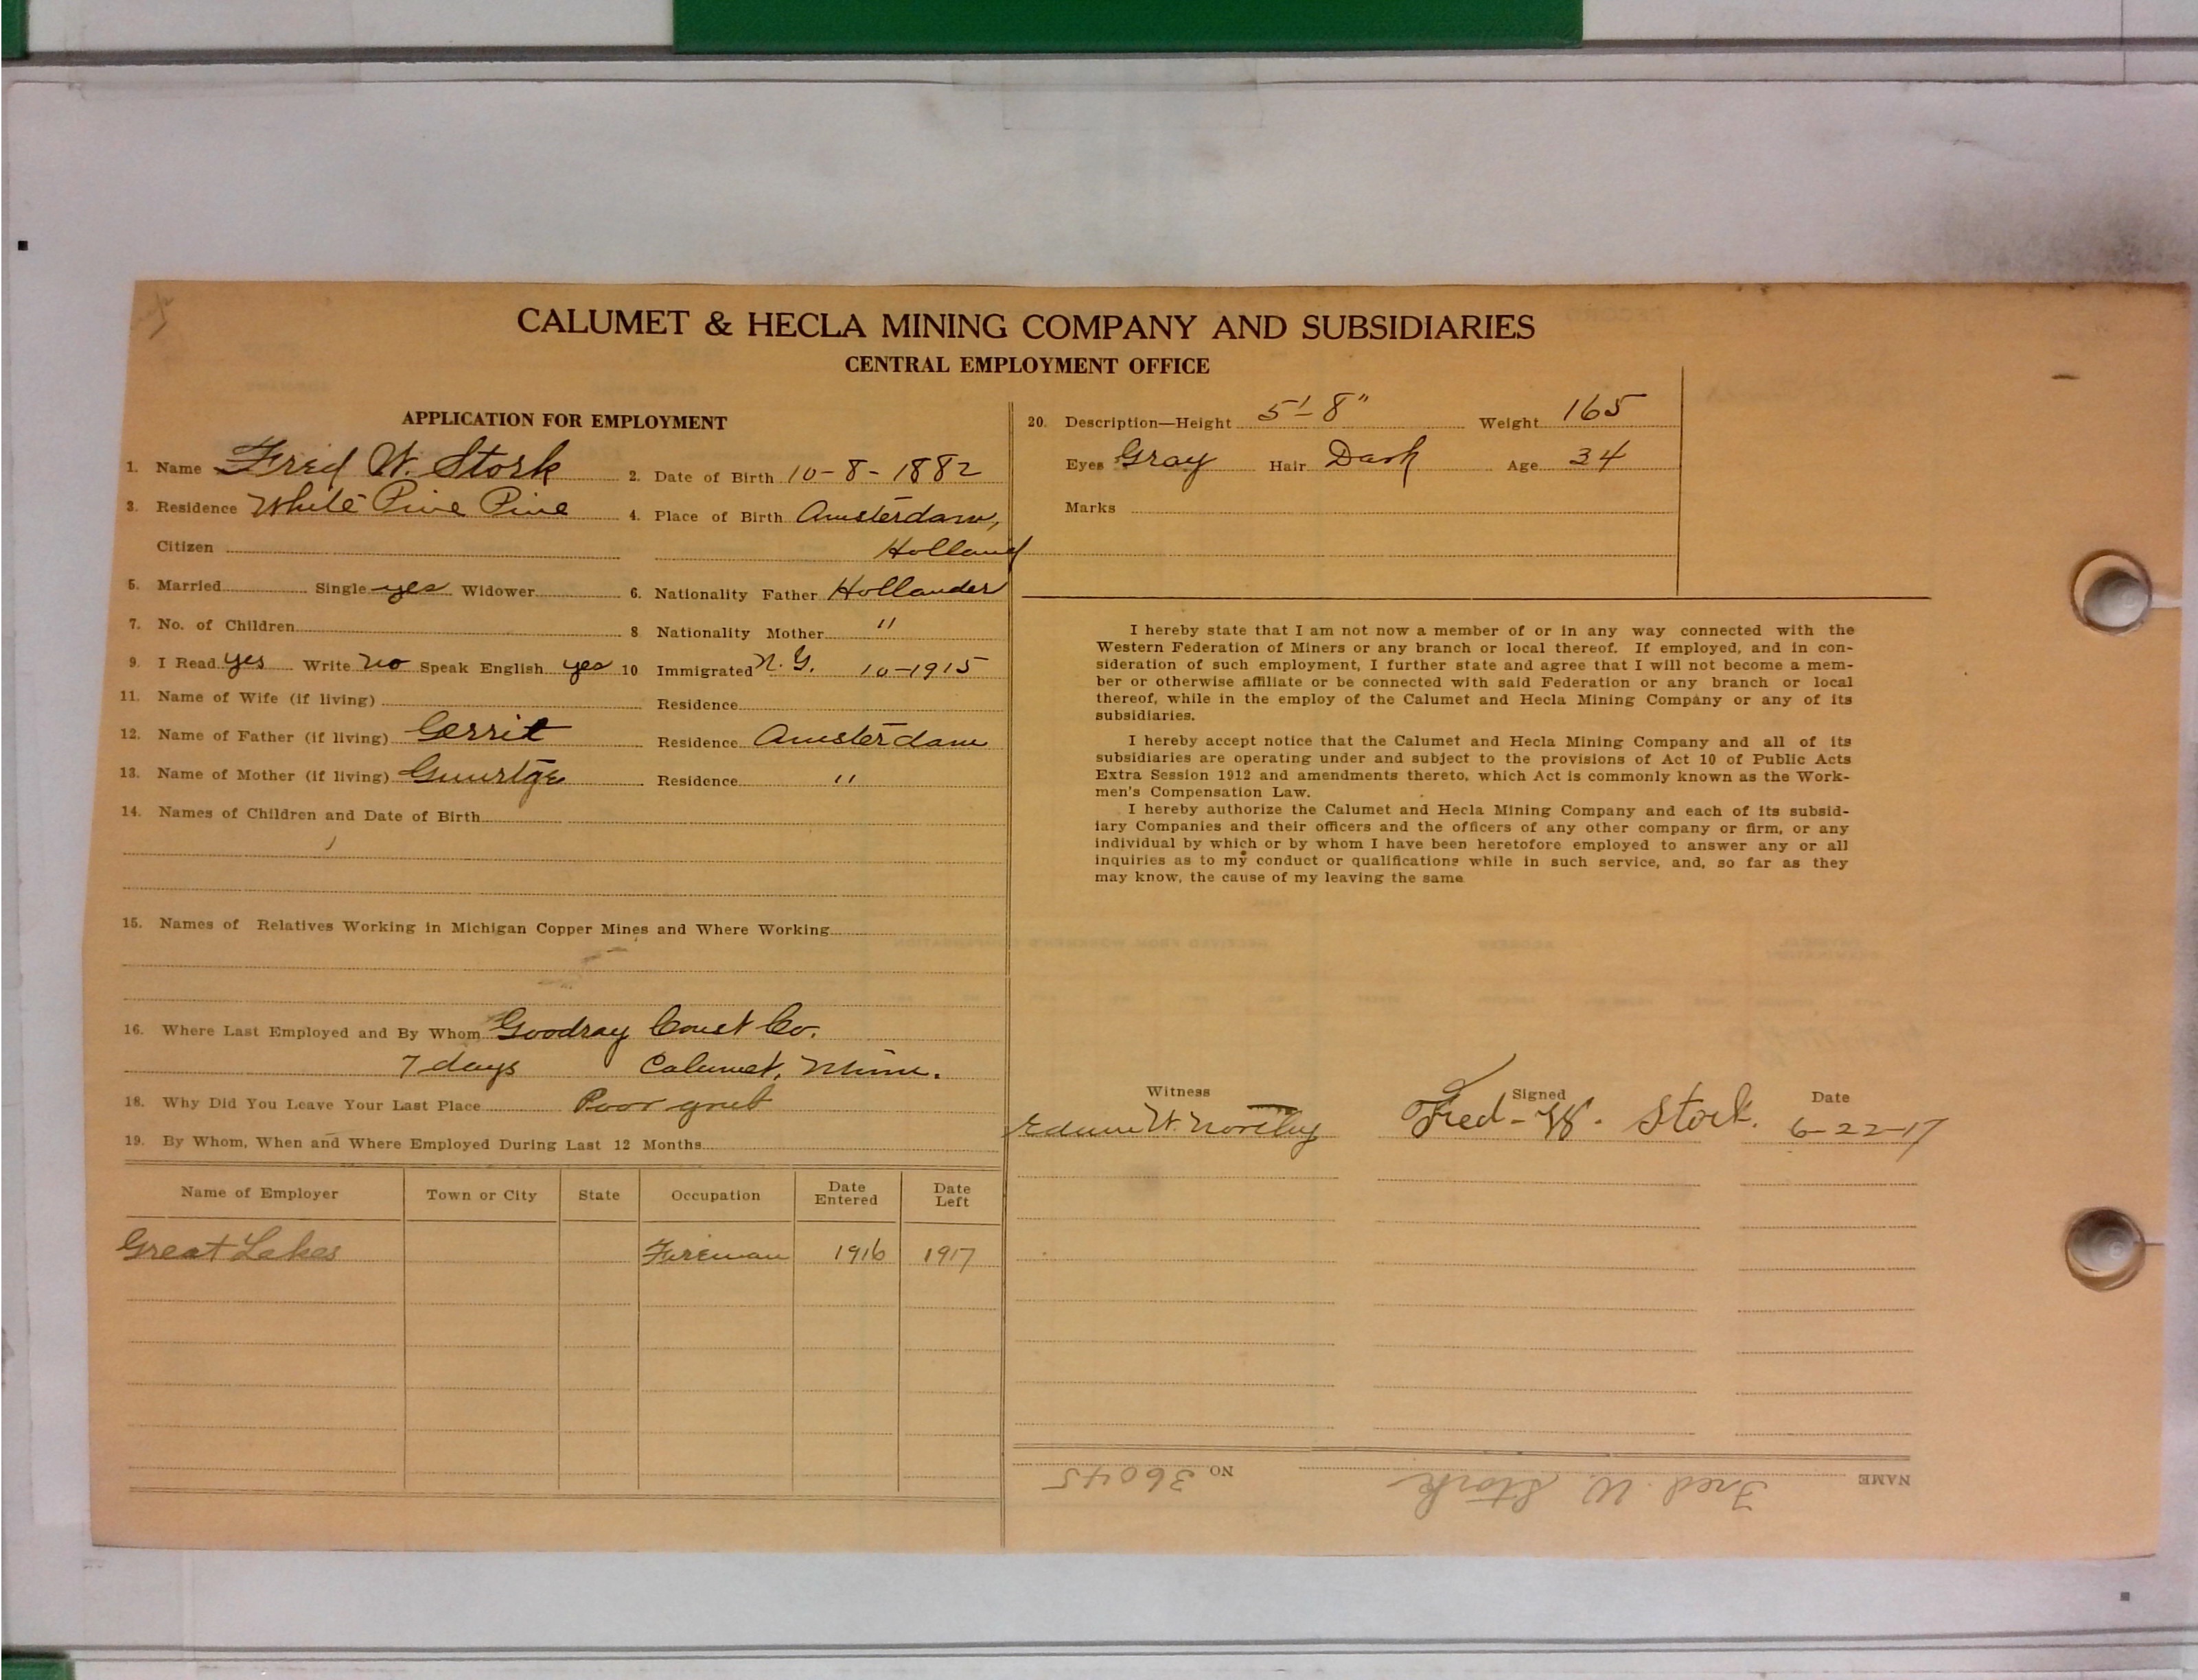 CALUMET & HECLA MINING COMPANY AND SUBSIDIARIES
CENTRAL EMPLOYMENT OFFICE
APPLICATION FOR EMPLOYMENT
1. Name Fred W. Stork 2. Date of Birth 10-8-1882
3. Residence White Pine Pine 4. Place of Birth Amsterdam,
Citizen Holland
5. Married Single yes Widower 6. Nationality Father Hollander
7. No. of Children 8 Nationality Mother "
9. I Read yes Write no Speak English yes 10 Immigrated N. Y. 10-1915
11. Name of Wife (if living) Residence
12. Name of Father (if living) Gerrit Residence Amsterdam
13. Name of Mother (if living) Guurtge Residence "
14. Names of Children and Date of Birth
15. Names of Relatives Working in Michigan Copper Mines and Where Working
16. Where Last Employed and By Whom Goodray Const Co.
7 days Calumet, Minn.
18. Why Did You Leave Your Last Place Poor grub
19. By Whom, When and Where Employed During Last 12 Months
Name of Employer Town or City State Occupation Date Entered Date Left
Great Lakes Fireman 1916 1917
20. Description—Height 5'-8" Weight 165
Eyes Gray Hair Dark Age 34
Marks
I hereby state that I am not now a member of or in any way connected with the
Western Federation of Miners or any branch or local thereof. If employed, and in con-
sideration of such employment, I further state and agree that I will not become a mem-
ber or otherwise affiliate or be connected with said Federation or any branch or local
thereof, while in the employ of the Calumet and Hecla Mining Company or any of its
subsidiaries.
I hereby accept notice that the Calumet and Hecla Mining Company and all of its
subsidiaries are operating under and subject to the provisions of Act 10 of Public Acts
Extra Session 1912 and amendments thereto, which Act is commonly known as the Work-
men's Compensation Law.
I hereby authorize the Calumet and Hecla Mining Company and each of its subsid-
iary Companies and their officers and the officers of any other company or firm, or any
individual by which or by whom I have been heretofore employed to answer any or all
inquiries as to my conduct or qualifications while in such service, and, so far as they
may know, the cause of my leaving the same
Witness Signed Date
W. Fred-W. Stork. 6-22-17
NAME Fred W. Stork NO 36045